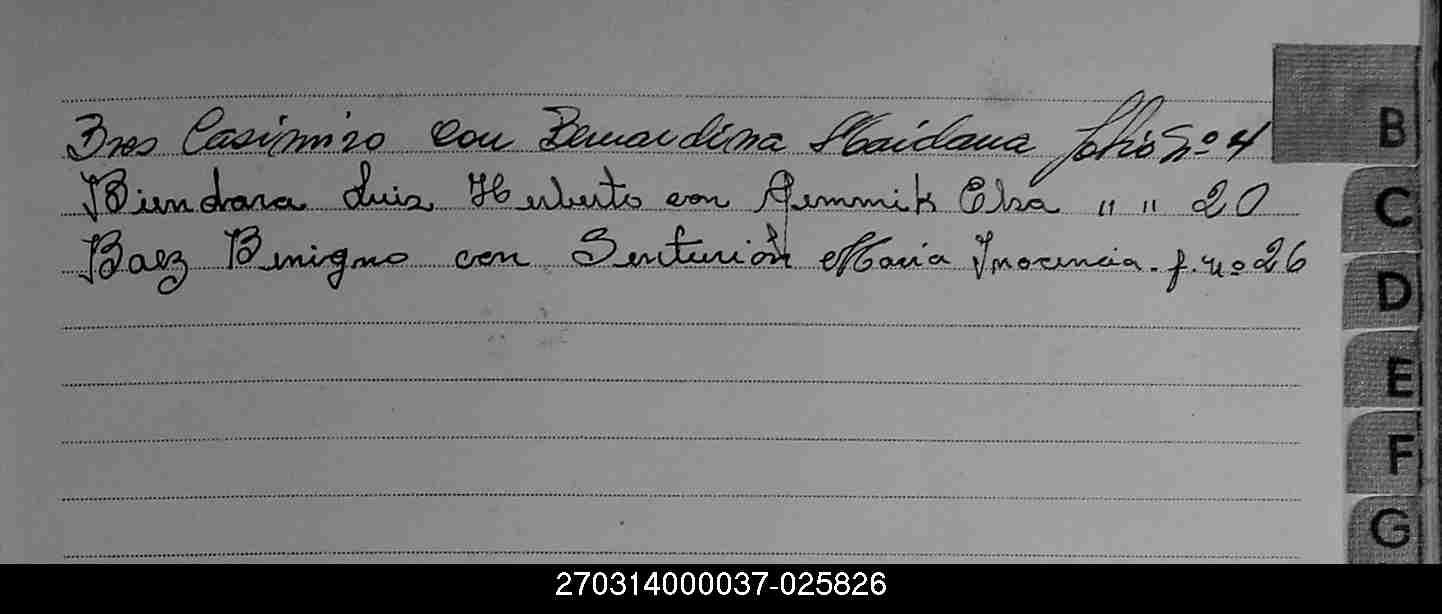 Bres Casimiro con Bernardina Maidana folio nº 4
Biendara Luis Heriberto con Gemmik Elsa " " 20
Baez Benigno con Senturión Maria Inocencia. f. nº 26
B
C
D
E
F
G
270314000037-025826